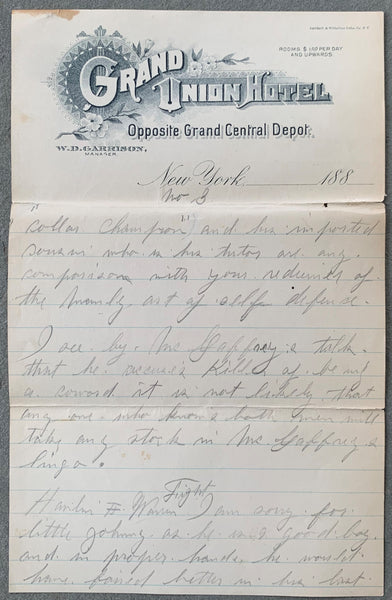 ROOMS $1.00 PER DAY
AND UPWARDS
GRAND
UNION HOTEL
Opposite Grand Central Depot.
W.D. GARRISON,
MANAGER.
New York 188
No 3
collar Champion and his imported
cousin who is his tutor are any
comparison with your redeemer of
the manly art of self defense.
I see by Mc Gaffrey,s talk
that he accuses Killen of being
a coward it is not likely that
any one who knows both men will
take any stock in Mc Gaffrey,s
lingo.
Fight
I am sorry for
little Johnny as he is a good boy
and in proper hands he would
have fared better in his last